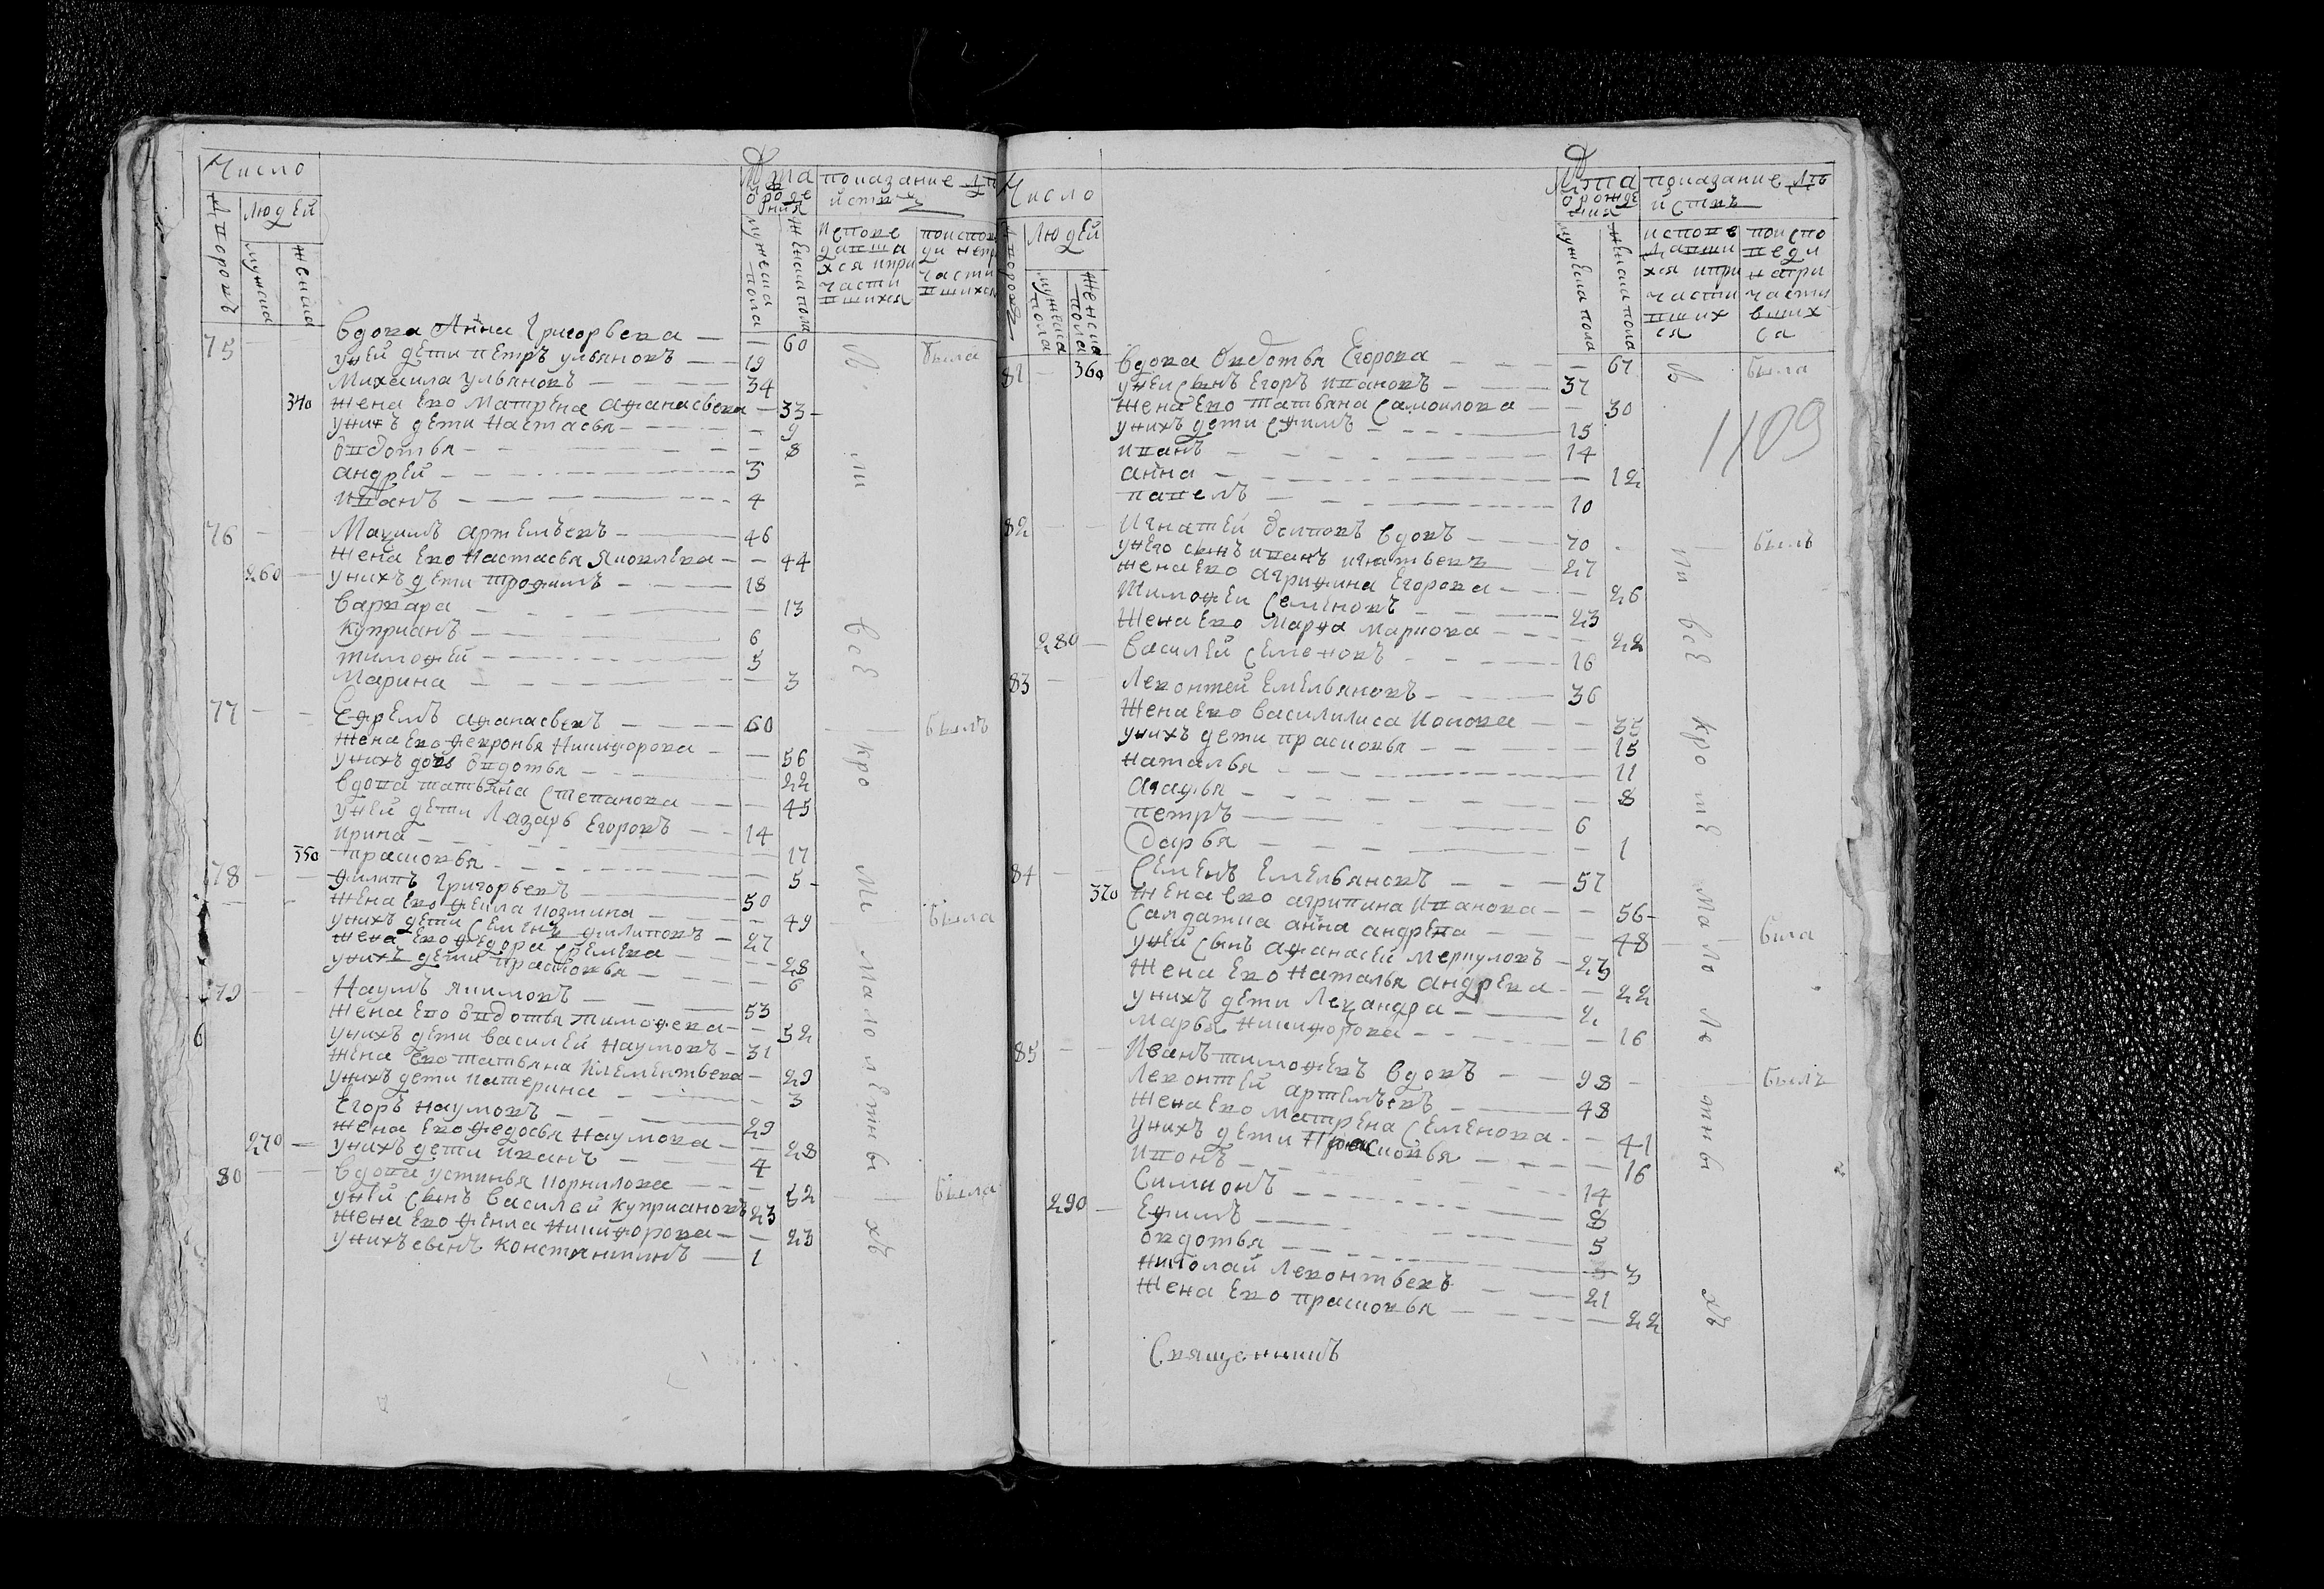 Число
Людей
Дворовъ
мужеска
женска
Лѣта
от рожде
ния
показание дѣ
йств
мужеска пола
женска пола
исповѣ
давша
хся и при
части
вшихся
75 вдова Анна Григорьева 60 была
у ней дети Петръ Ульяновъ 19
Михаила Ульяновъ 34
340 жена ево Матрена Афанасьева 33
у нихъ дети Настасья 9
Овдотья 8
Андрей 5
Иванъ 4
76 Маѯимъ Артемьевъ 46
жена ево Настасья Яковлева 44
260 у нихъ дети Трофимъ 18
Варвара 13
Куприанъ 6
Тимофей 5
Марина 3
77 Ефремъ Афанасьевъ 60 былъ
жена ево Февронья Никифорова 56
у нихъ дочь Овдотья 22
вдова Татьяна Степанова 45
у ней дети Лазарь Егоровъ 14
Ирина 17
350 Прасковья 5
78 Филипъ Григорьевъ 50
жена ево Фекла Козмина 49 была
у нихъ дети Семенъ Филиповъ 27
жена ево Федора Ефремова 28
у нихъ дети Прасковья 6
79 Наумъ Якимовъ 53
жена ево Овдотья Тимофева 52
у нихъ дети Василей Наумовъ 31
жена ево Татьяна Клементьева 29
у нихъ дети Катерина 3
Егоръ Наумовъ 29
жена ево Федосья Наумова 28
270 у нихъ дети Иванъ 4
80 вдова Устинья Корнилова 62 была
у ней сынъ Василей Куприановъ 23
жена ево Фекла Никифорова 23
у нихъ сынъ Константинъ 1
в ш всѣ кро мѣ малолѣтныхъ
Число
Людей
Дворовъ
мужеска
пола
женска
пола
Лѣта
от рожде
ния
показание дѣ
йствъ
мужеска пола
женска пола
исповѣ
давши
хся и при
части
вших
ся
по испо
веди
не при
части
вших
ся
81 360 вдова Овдотья Егорова 67 была
у ней сынъ Егоръ Ивановъ 37
жена ево Татьяна Самоилова 30
у нихъ дети Ефимъ 15
Иванъ 14
Анна 12
Павелъ 10
82 Игнатей Осиповъ вдовъ 70 былъ
у него сынъ Иванъ Игнатьевъ 27
жена ево Агрифина Егорова 26
Тимофей Семеновъ 23
жена ево Марфа Маркова 22
280 Василей Семеновъ 16
83 Левонтей Емельяновъ 36
жена ево Василилиса Ионова 35
у нихъ дети Прасковья 15
Наталья 11
Агафья 8
Петръ 6
Дарья 1
84 Семенъ Емельяновъ 57
370 жена ево Агрипина Иванова 56
Салдатка Анна Андрева 48 была
у ней сынъ Афанасей Меркуловъ 23
жена ево Наталья Андрева 22
у нихъ дети Леѯандра 2
Марья Никифорова 16
85 Иванъ Тимофевъ вдовъ 98 былъ
Левонтей Артемьевъ 48
жена ево Матрена Семенова 41
у нихъ дети Прасковья 16
Ивонъ 14
Симионъ 8
290 Ефимъ 5
Овдотья 3
Николай Левонтьевъ 21
жена ево Прасковья 22
всѣ кро мѣ малолѣтныхъ
Священникъ